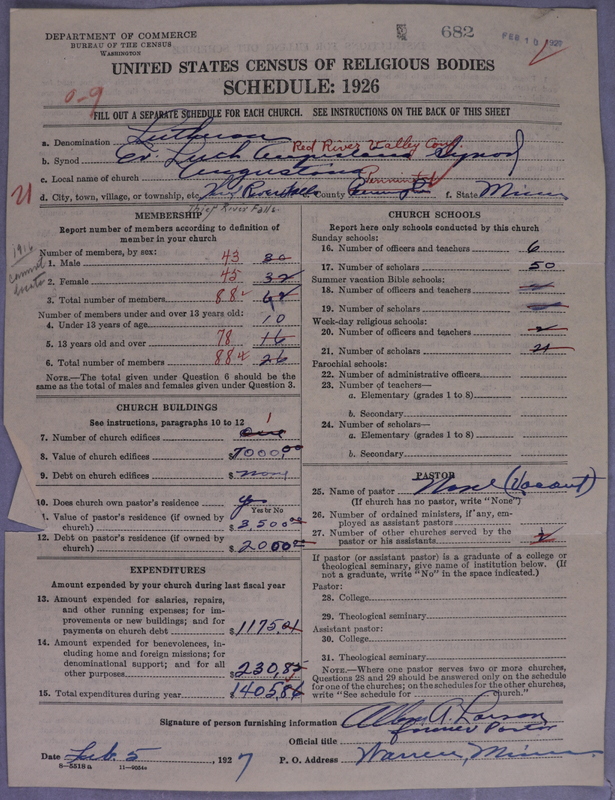 DEPARTMENT OF COMMERCE
BUREAU OF THE CENSUS
WASHINGTON
682
FEB 10 1927
UNITED STATES CENSUS OF RELIGIOUS BODIES
SCHEDULE: 1926
0-9
FILL OUT A SEPARATE SCHEDULE FOR EACH CHURCH. SEE INSTRUCTIONS ON THE BACK OF THIS SHEET
a. Denomination Lutheran
Red River Valley Conf.
b. Synod Ev. Luth Augustana Synod
c. Local name of church Augustana
Pennington
d. City, town, village, or township, etc. Thief River Falls County Pennington f. State Minn
Thief River Falls.
21
MEMBERSHIP
Report number of members according to definition of
member in your church
1916
Number of members, by sex:
1. Male 43
2. Female 45 32
3. Total number of members 88 62
Number of members under and over 13 years old:
4. Under 13 years of age 10
5. 13 years old and over 78 16
6. Total number of members 88 26
NOTE.—The total given under Question 6 should be the
same as the total of males and females given under Question 3.
CHURCH BUILDINGS
See instructions, paragraphs 10 to 12
7. Number of church edifices one 1
8. Value of church edifices $7000.00
9. Debt on church edifices $ none
10. Does church own pastor's residence yes
Yes or No
1. Value of pastor's residence (if owned by
church) $3,500.00
12. Debt on pastor's residence (if owned by
church) $2000.00
EXPENDITURES
Amount expended by your church during last fiscal year
13. Amount expended for salaries, repairs,
and other running expenses; for im-
provements or new buildings; and for
payments on church debt $1175.01
14. Amount expended for benevolences, in-
cluding home and foreign missions; for
denominational support; and for all
other purposes $230.85
15. Total expenditures during year $1405.86
CHURCH SCHOOLS
Report here only schools conducted by this church
Sunday schools:
16. Number of officers and teachers 6
17. Number of scholars 50
Summer vacation Bible schools:
18. Number of officers and teachers
19. Number of scholars
Week-day religious schools:
20. Number of officers and teachers 2
21. Number of scholars 21
Parochial schools:
22. Number of administrative officers
23. Number of teachers—
a. Elementary (grades 1 to 8)
b. Secondary
24. Number of scholars—
a. Elementary (grades 1 to 8)
b. Secondary
PASTOR
25. Name of pastor None (Vacant)
(If church has no pastor, write "None")
26. Number of ordained ministers, if any, em-
ployed as assistant pastors
27. Number of other churches served by the
pastor or his assistants 2
If pastor (or assistant pastor) is a graduate of a college or
theological seminary, give name of institution below. (If
not a graduate, write "No" in the space indicated.)
Pastor:
28. College
29. Theological seminary
Assistant pastor:
30. College
31. Theological seminary
NOTE.—Where one pastor serves two or more churches,
Questions 28 and 29 should be answered only on the schedule
for one of the churches; on the schedules for the other churches,
write "See schedule for church."
Signature of person furnishing information A. Larson
Official title former Pastor
Date Feb. 5, 1927 P. O. Address Warren, Minn.
8—5518a 11—9054